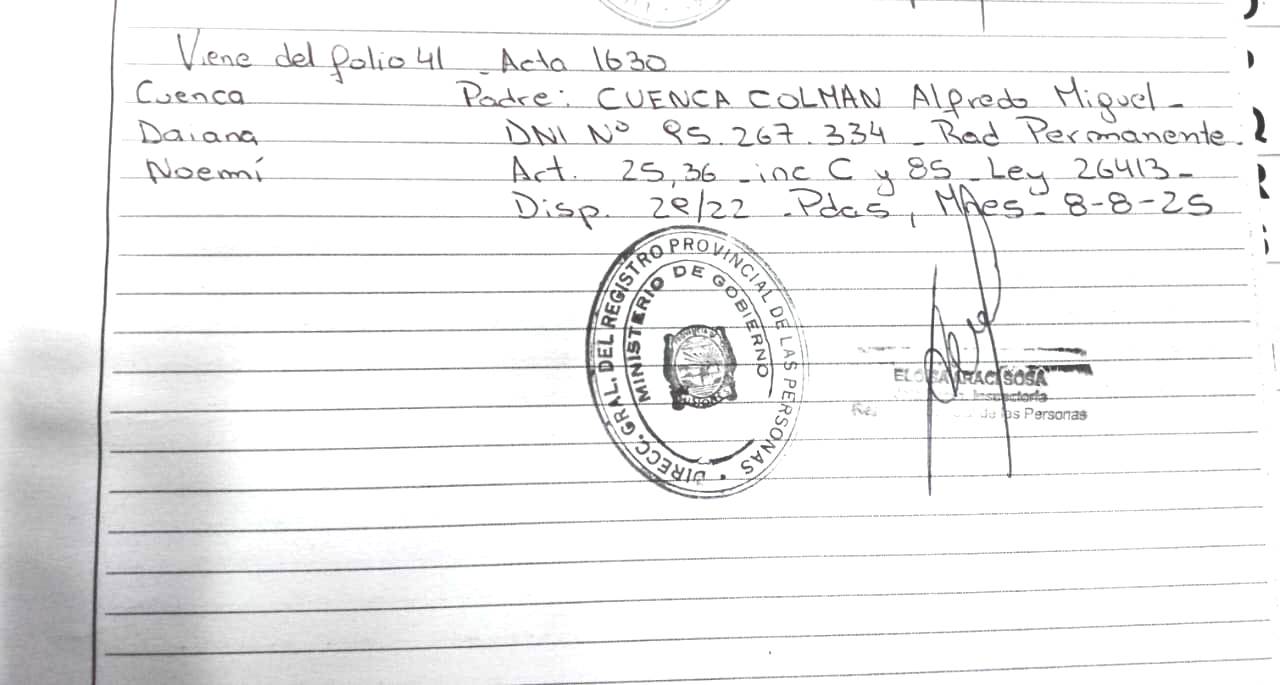 Viene del folio 41 - Acta 1630
Cuenca Padre: CUENCA COLMAN Alfredo Miguel -
Daiana DNI Nº 95.267.334 - Rad Permanente.
Noemí Art. 25,36 - inc C y 85 - Ley 26413 -
Disp. 29/22 - Pdas, Mnes - 8-8-25
DIRECC. GRAL. DEL REGISTRO PROVINCIAL DE LAS PERSONAS
MINISTERIO DE GOBIERNO
ARACI SOSA
Inspectoria
de las Personas